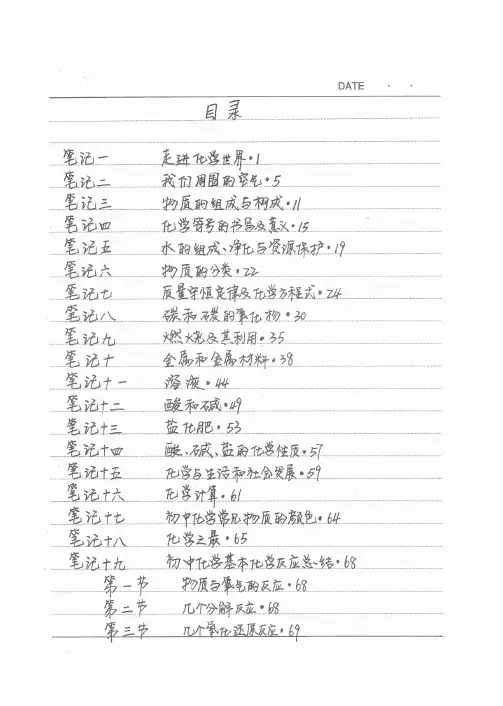 DATE · ·
目录
笔记一 走进化学世界·1
笔记二 我们周围的空气·5
笔记三 物质的组成与构成·11
笔记四 化学符号的书写及意义·15
笔记五 水的组成、净化与资源保护·19
笔记六 物质的分类·22
笔记七 质量守恒定律及化学方程式·24
笔记八 碳和碳的氧化物·30
笔记九 燃烧及其利用·35
笔记十 金属和金属材料·38
笔记十一 溶液·44
笔记十二 酸和碱·49
笔记十三 盐 化肥·53
笔记十四 酸、碱、盐的化学性质·57
笔记十五 化学与生活和社会发展·59
笔记十六 化学计算·61
笔记十七 初中化学常见物质的颜色·64
笔记十八 化学之最·65
笔记十九 初中化学基本化学反应总结·68
第一节 物质与氧气的反应·68
第二节 几个分解反应·68
第三节 几个氧化还原反应·69